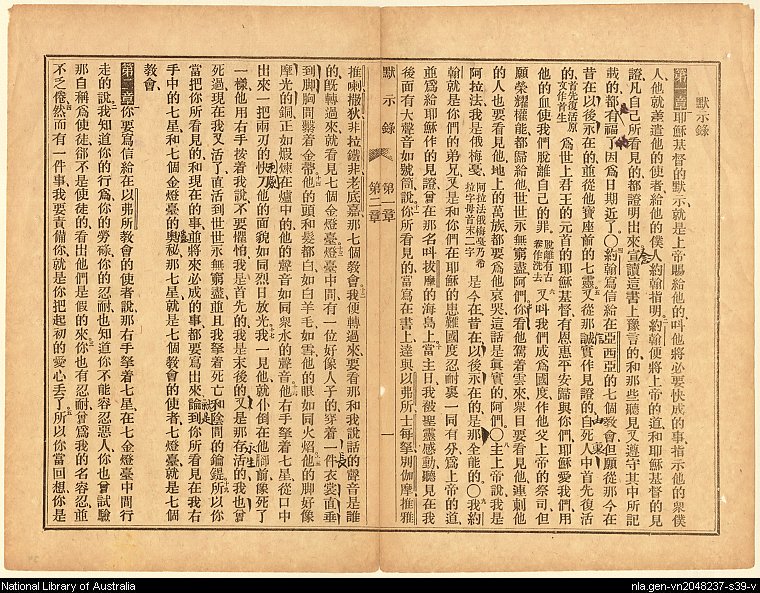 默示錄
第一章耶穌基督的默示就是上帝賜給他的叫他將必要快成的事指示他的衆僕
人他就差遣他的使者給他的僕人約翰指明約翰便將上帝的道和耶穌基督的見
證凡自己所看見的都證明出來宣讀這書上豫言的和那些聽見又遵守其中所記
載的都有福了因爲日期近了〇約翰寫信給在亞西亞的七個教會但願從那今在
昔在以後永在的並從他寶座前的七靈又從那誠實作見證的自死人中首先復活
的首先復活原文作首生爲世上君王的元首的耶穌基督有恩惠平安歸與你們耶穌愛我們用
他的血使我們脫離自己的罪脫離有古卷作洗去又叫我們成爲國度作他父上帝的祭司但
願榮耀權能都歸給他世世永無窮盡阿們你看他駕着雲來衆目要看見他連刺他
的人也要看見他地上的萬族都要爲他哀哭這話是眞實的阿們〇主上帝說我是
阿拉法我是俄梅戞阿拉法俄梅戞乃希拉字母首末二字是今在昔在以後永在的是那全能的〇我約
翰就是你們的弟兄又是和你們在耶穌的患難國度忍耐裏一同有分爲上帝的道
並爲給耶穌作的見證曾在那名叫拔摩的海島上當主日我被聖靈感動聽見在我
後面有大聲音如號筒說你所看見的當寫在書上達與以弗所士每拏別伽摩推雅
默示錄 第一章 第二章 一
推喇撒狄非拉鐵非老底嘉那七個教會我便轉過來要看那和我說話的聲音是誰
的旣轉過來就看見七個金燈臺燈臺中間有一位好像人子的穿着一件衣裳直垂
到脚胸間繫着金帶他的頭和髮都白如白羊毛如雪他的眼如同火焰他的脚好像
摩光的銅正如煅煉在爐中的他的聲音如同衆水的聲音他右手拏着七星從口中
出來一把兩刃的快刀他的面貌如同烈日放光我一見他就仆倒在他脚前像死了
一樣他用右手按着我說不要懼怕我是首先的我是末後的又是那存活的我也曾
死過現在我又活了直活到世世永無窮盡並且我拏着死亡和陰間的鑰鍉所以你
當把你所看見的和現在的事並將來必成的事都要寫出來論到你所看見在我右
手中的七星和七個金燈臺的奧秘那七星就是七個教會的使者七燈臺就是七個
教會
第二章你要寫信給在以弗所教會的使者說那右手拏着七星在七金燈臺中間行
走的說我知道你的行爲你的勞碌你的忍耐也知道你不能容忍惡人你也曾試驗
那自稱爲使徒卻不是使徒的看出他們是假的來你也有忍耐曾爲我的名容忍並
不乏倦然而有一件事我要責備你就是你把起初的愛心丟了所以你當回想你是
National Library of Australia
nla.gen-vn2048237-s39-v